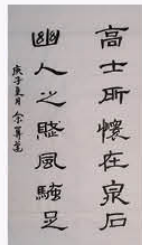 高士所懷在泉石
幽人之賤風騷足
庚子夏月余